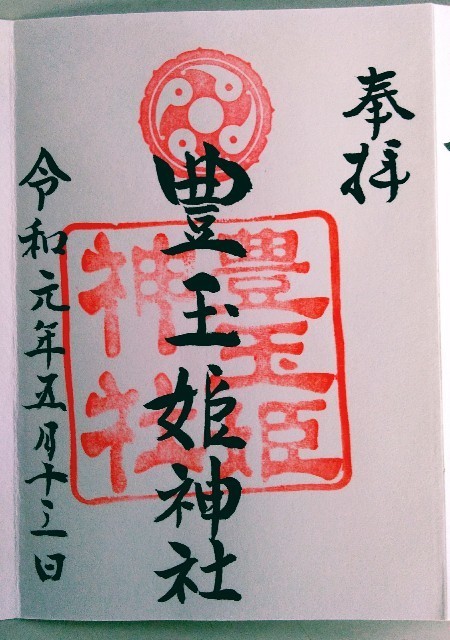 奉拝
豊玉姫神社
豊玉姫
神社
令和元年五月十三日